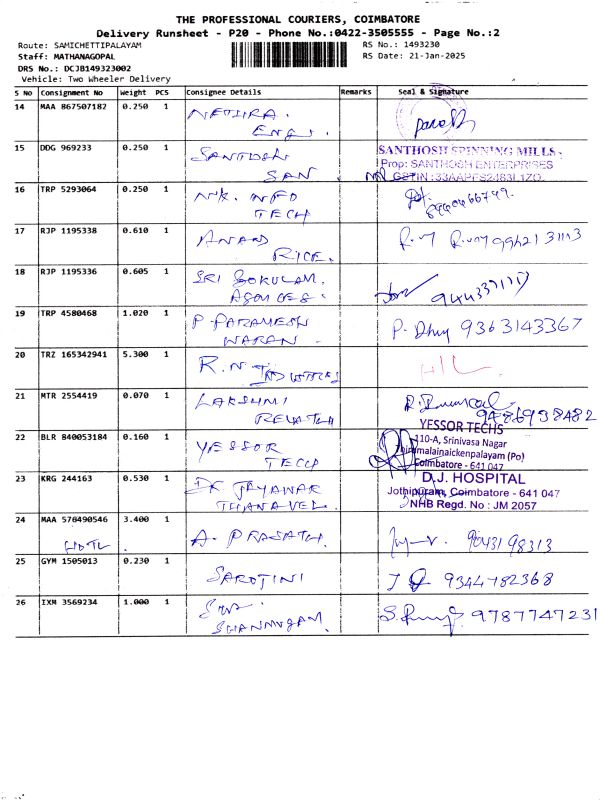 THE PROFESSIONAL COURIERS, COIMBATORE
Delivery Runsheet - P20 - Phone No.:0422-3505555 - Page No.:2
Route: SAMICHETTIPALAYAM RS No.: 1493230
Staff: MATHANAGOPAL RS Date: 21-Jan-2025
DRS No.: DCJB149323002
Vehicle: Two Wheeler Delivery
S No Consignment No Weight PCS Consignee Details Remarks Seal & Signature
14 MAA 867507182 0.250 1 NETHRA.
ENGI.
15 DDG 969233 0.250 1 SANTOSH SANTHOSH SPINNING MILLS
SAN Prop: SANTHOSH ENTERPRISES
16 TRP 5293064 0.250 1 INFO
TECH
17 RJP 1195338 0.610 1 ANAND
RICE.
18 RJP 1195336 0.605 1 SRI GOKULAM.
AGENCIES.
19 TRP 4580468 1.020 1 P PARAMESH P. 9363143367
WARAN.
20 TRZ 165342941 5.300 1 R.N
INDUSTRIES
21 MTR 2554419 0.070 1 LAKSHMI
REVATHI 9486938482
22 BLR 840053184 0.160 1 YESSOR YESSOR TECHS
TECH 110-A, Srinivasa Nagar
malainaickenpalayam (Po)
Coimbatore - 641 047
23 KRG 244163 0.530 1 DR JAYAWAR D.J. HOSPITAL
THANAVEL. Jothipuram, Coimbatore - 641 047
NHB Regd. No : JM 2057
24 MAA 576490546 3.400 1 A. PRASATH. 9043198313
25 GYM 1505013 0.230 1 SAROJINI 9344782368
26 IXM 3569234 1.000 1 9787747231
SHANMUGAM.